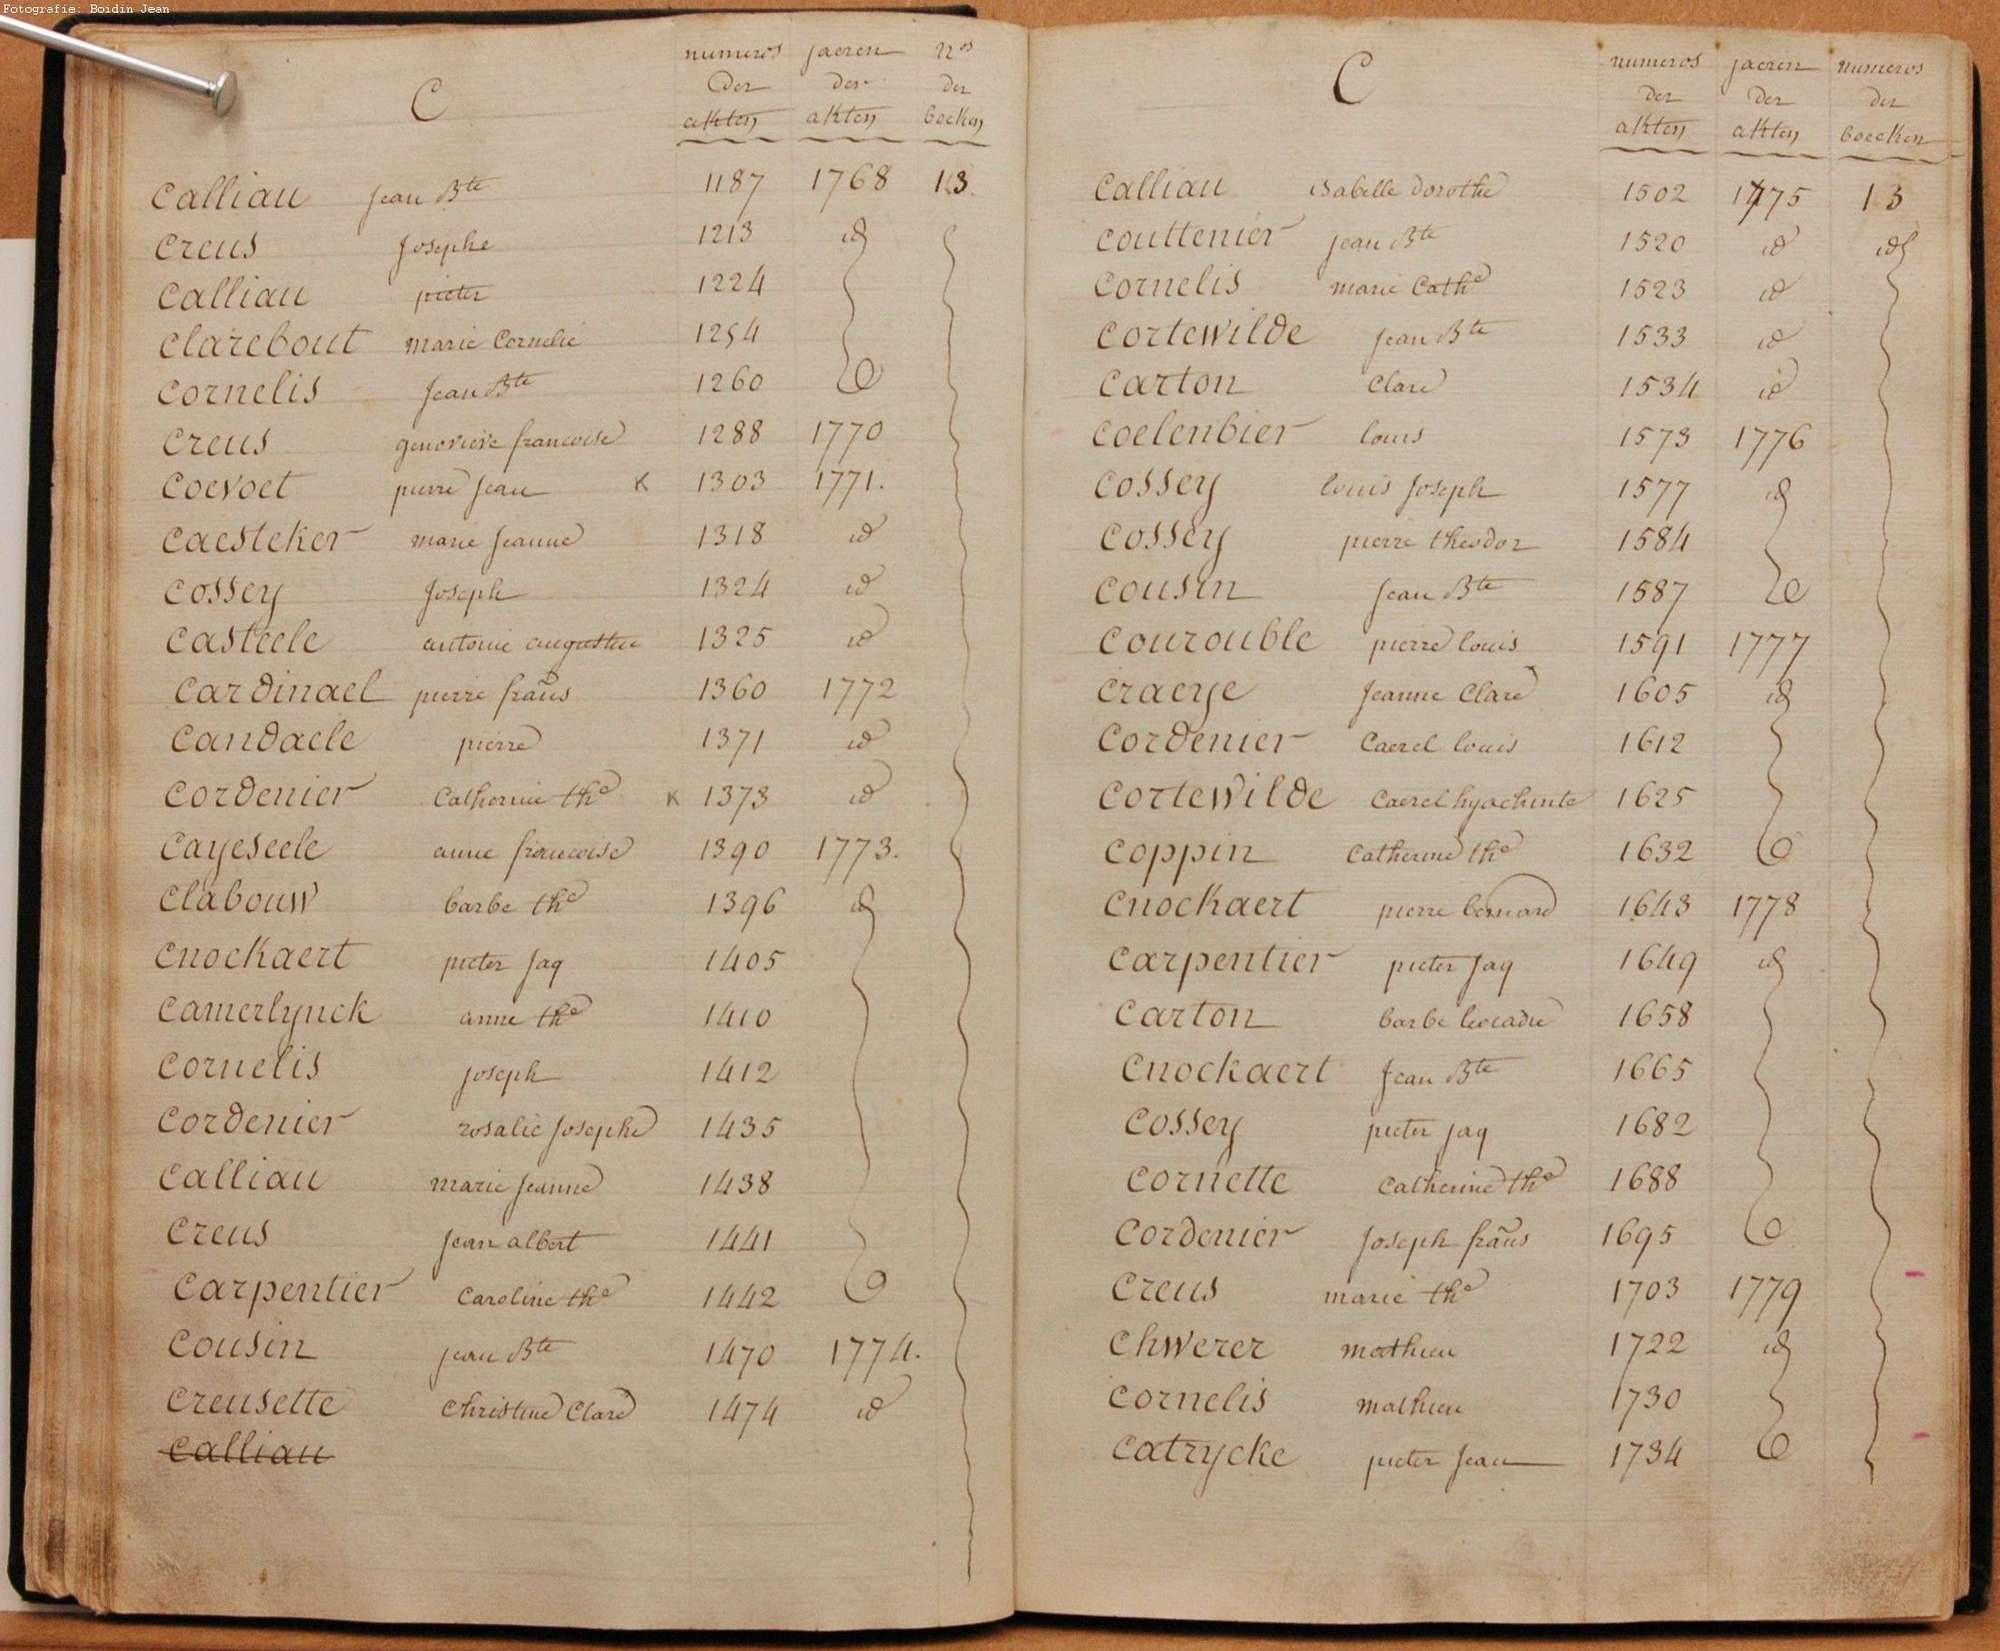 Fotografie: Boidin Jean
C
numeros jaeren nos
der der der
akten akten boeken
Calliau jean Bte 1187 1768 13.
Creus josephe 1213 id
Calliau pieter 1224
Clarebout marie Cornelie 1254
Cornelis jean Bte 1260
Creus genovieve francoise 1288 1770
Coevoet pierre jean K 1303 1771.
Caesteker marie jeanne 1318 id
Cossey joseph 1324 id
Casteele antonie augustin 1325 id
Cardinael pierre frans 1360 1772
Candaele pierre 1371 id
Cordenier Catherine the K 1373 id
Cayeseele anne francoise 1390 1773.
Clabouw barbe the 1396 id
Cnockaert pieter jaq 1405
Camerlynck anne the 1410
Cornelis joseph 1412
Cordenier rosalie josephe 1435
Calliau marie jeanne 1438
Creus jean albert 1441
Carpentier Caroline the 1442
Cousin jean Bte 1470 1774.
Creusette Christine Clare 1474 id
Calliau
C
numeros jaeren numeros
der der der
akten akten boecken
Calliau isabelle dorothe 1502 1775 13
Couttenier jean Bte 1520 id id
Cornelis marie Cathe 1523 id
Cortewilde jean Bte 1533 id
Carton Clare 1534 id
Coelenbier louis 1573 1776
Cossey louis joseph 1577 id
Cossey pierre theodor 1584
Cousin jean Bte 1587
Courouble pierre louis 1591 1777
Craeye jeanne Clare 1605 id
Cordenier Caerel louis 1612
Cortewilde Caerel hyachinte 1625
Coppin Catherine the 1632
Cnockaert pierre bernard 1643 1778
Carpentier pieter jaq 1649 id
Carton barbe leocadie 1658
Cnockaert jean Bte 1665
Cossey pieter jaq 1682
Cornette Catherine the 1688
Cordenier joseph frans 1695
Creus marie the 1703 1779
Chwerer mathieu 1722 id
Cornelis mathieu 1730
Catrycke pieter jean 1734